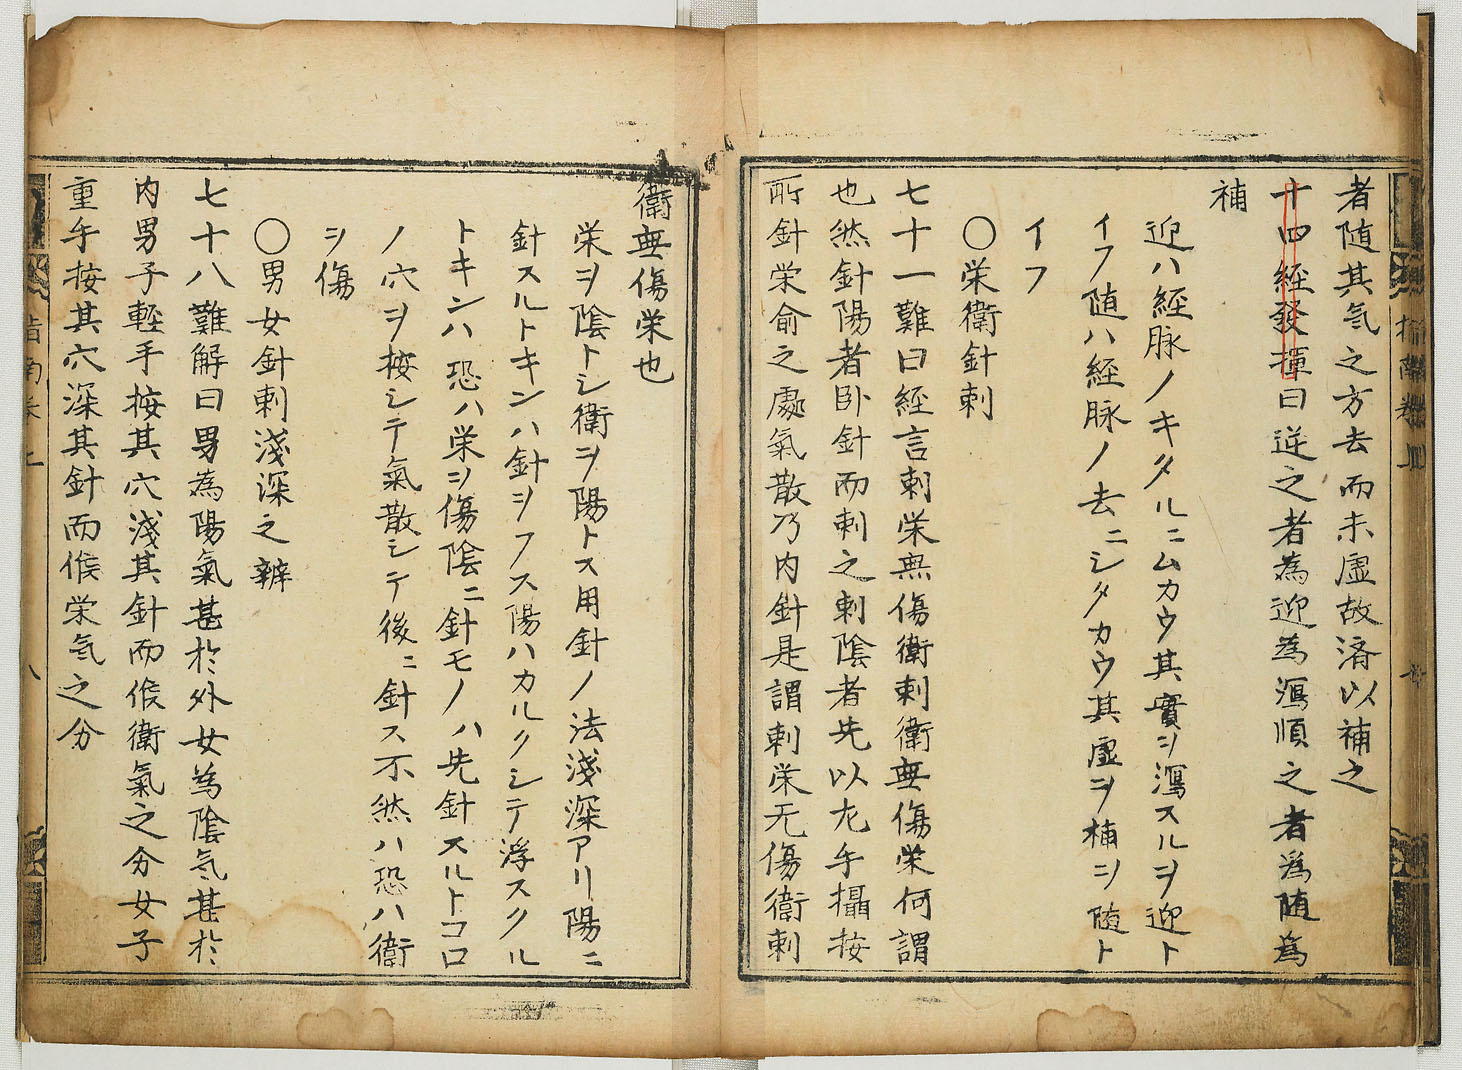 者随其気之方去而未虚故済以補之
十四経發揮曰逆之者為迎為瀉順之者為随為
補
迎ハ経脉ノキタルニムカウ其實ヲ瀉スルヲ迎ト
イフ随ハ経脉ノ去ニシタカウ其虚ヲ補ヲ随ト
イフ
〇栄衛針刺
七十一難曰経言刺栄無傷衛刺衛無傷栄何謂
也然針陽者卧針而刺之刺陰者先以左手攝按
所針栄俞之處氣散乃内針是謂刺栄无傷衛刺
衛無傷栄也
栄ヲ陰トシ衛ヲ陽トス用針ノ法淺深アリ陽ニ
針スルトキンハ針ヲフス陽ハカルクシテ浮スクル
トキンハ恐ハ栄ヲ傷陰ニ針モノハ先針スルトコロ
ノ穴ヲ按シテ氣散シテ後ニ針ス不然ハ恐ハ衛
ヲ傷
〇男女針刺淺深之辨
七十八難解曰男為陽氣甚於外女為陰気甚於
内男子輕手按其穴淺其針而候衛氣之分女子
重手按其穴深其針而候栄気之分